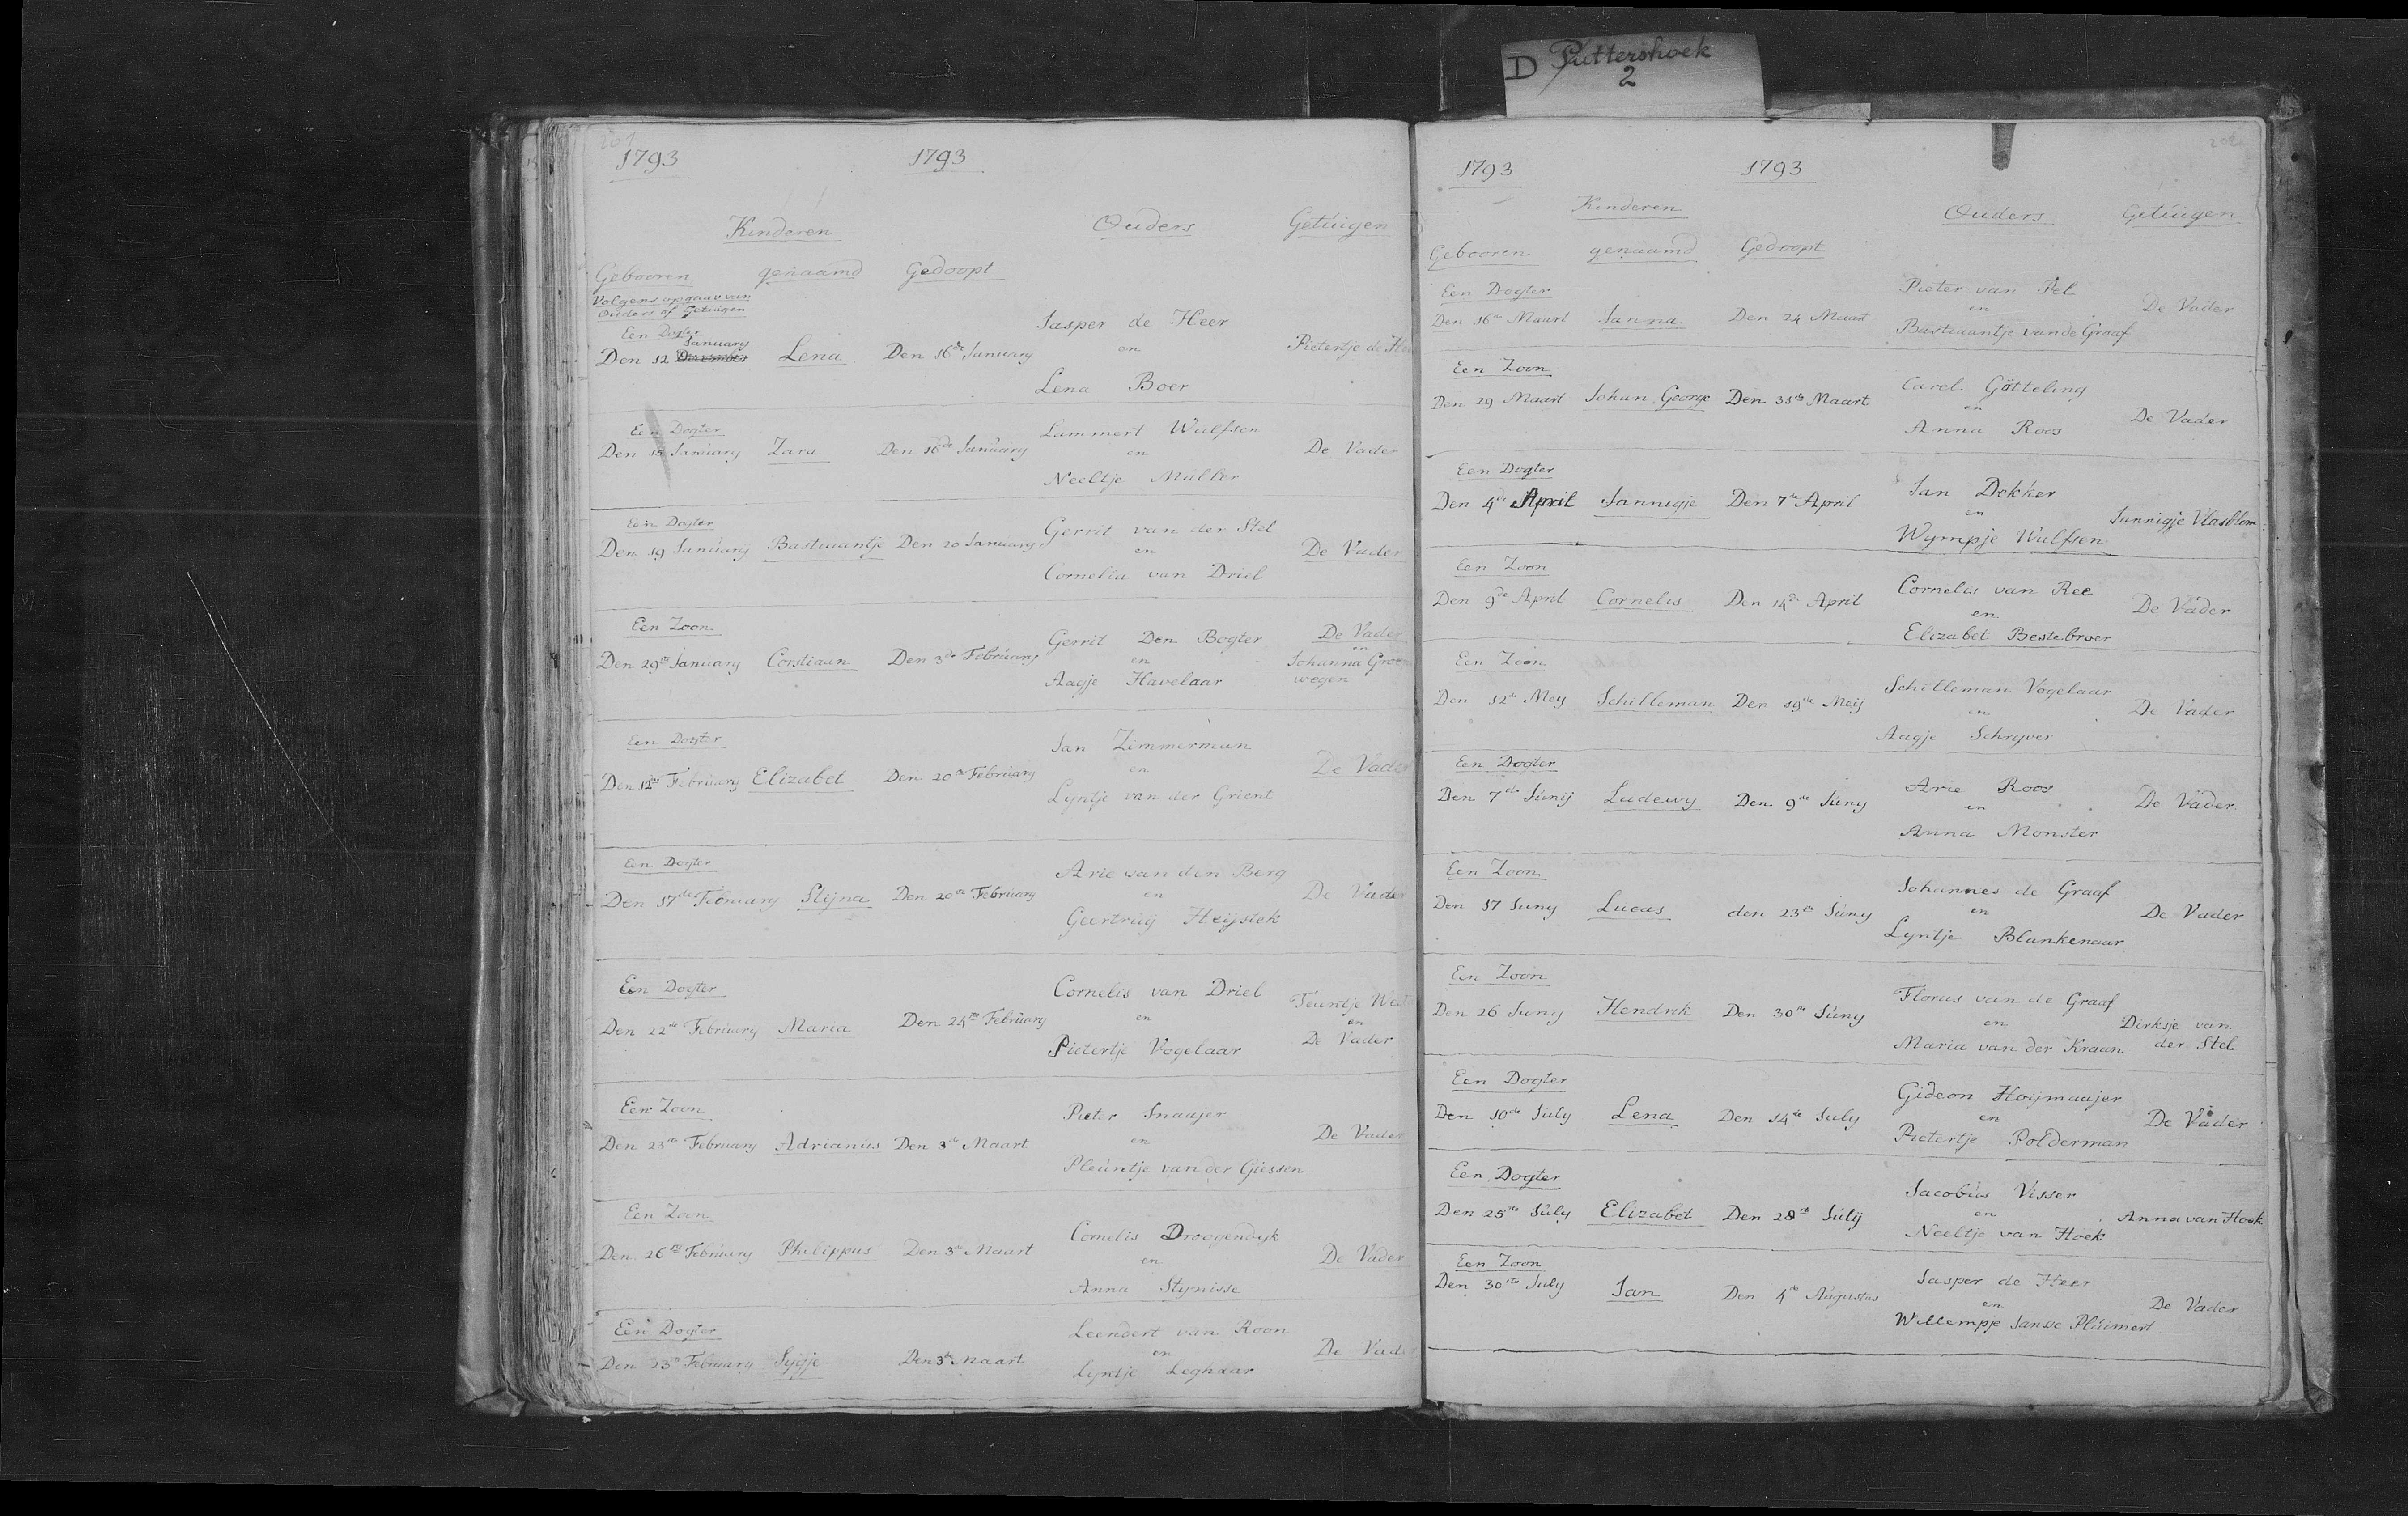 D Puttershoek
2
1793 1793
Kinderen Ouders Getuigen
Gebooren genaamd Gedoopt
Volgens opgaav van
Ouders of Getuigen
Een Dogter
January
Jasper de Heer
Den 12 December Lena Den 16de January en Pietertje de
Lena Boer
Een Dogter
Lammert Wulfsen
Den January Zara Den 16de January en De Vader
Neeltje Muller
Een Dogter
Gerrit van der Stel
Den 19 January Bastiaantje Den 20 January en De Vader
Cornelia van Driel
Een Zoon
Gerrit Den Bogter De Vader
en
Den 29ste January Corstiaan Den 3de February en Johanna Groen
Aagje Havelaar wegen
Een Dogter
Jan Zimmerman
Den 12de February Elizabet Den 20ste February en De Vader
Lyntje van der Grient
Een Dogter
Arie van den Berg
Den 17de February Stijna Den 20ste February en De Vader
Geertruij Heijstek
Een Dogter
Cornelis van Driel Teuntje
Den 22ste February Maria Den 24ste February en en
Pietertje Vogelaar De Vader
Een Zoon
Pieter Snaajer
Den 23ste February Adrianus Den 3de Maart en De Vader
Pleuntje van der Giessen
Een Zoon
Cornelis Droogendyk
Den 26ste February Philippus Den 3de Maart en De Vader
Anna Stynisse
Een Dogter
Leendert van Roon
Den 23ste February Sijgje Den 3de Maart en De Vader
Lyntje Leghaar
1793 1793
Kinderen Ouders Getuigen
Gebooren genaamd Gedoopt
Een Dogter
Pieter van Pel
Den 16de Maart Janna Den 24 Maart en De Vader
Bastiaantje van de Graaf
Een Zoon
Carel Götteling
Den 29 Maart Johan George Den 31ste Maart en De Vader
Anna Roos
Een Dogter
Jan Dekker
Den 4de April Jannigje Den 7de April en Jannigje Vlasblom
Wympje Wulfsen
Een Zoon
Cornelis van Ree
Den 9de April Cornelis Den 14de April en De Vader
Elizabet Bestebroer
Een Zoon
Schilleman Vogelaar
Den 12de Mey Schilleman Den 19de Meij en De Vader
Aagje Schryver
Een Dogter
Arie Roos
Den 7de Junij Ladewy Den 9de Juny en De Vader
Anna Monster
Een Zoon
Johannes de Graaf
Den 17 Juny Lucas den 23ste Juny en De Vader
Lyntje Blankenaar
Een Zoon
Florus van de Graaf
Den 26 Juny Hendrik Den 30ste Juny en Dirksje van
Maria van der Kraan der Stel
Een Dogter
Gideon Hoijmaajer
Den 10de July Lena Den 14de July en De Vader
Pietertje Polderman
Een Dogter
Jacobus Visser
Den 25ste July Elizabet Den 28ste Julij en Anna van Hoek
Neeltje van Hoek
Een Zoon
Jasper de Heer
Den 30ste July Jan Den 4de Augustus en De Vader
Willempje Janse Pluimert